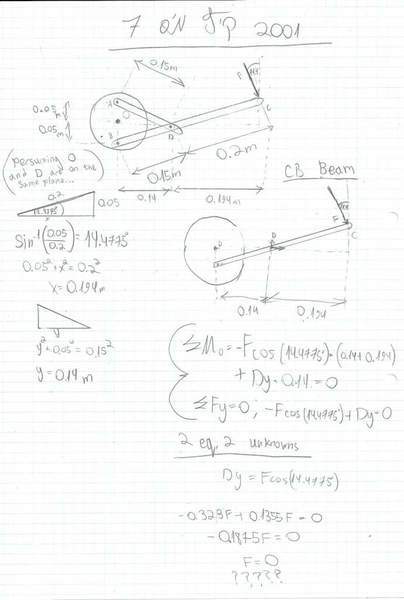 2001
0.15m
0.05m
0.05m
P
A
O
B
D
C
0.15m
0.2m
0.14
0.194m
(Persuming O
and D are on the
same plane...)
0.2
14.4775°
0.05
x
Sin⁻¹(0.05/0.2) = 14.4775°
0.05²+x²=0.2²
x=0.194m
y
y²+0.05²=0.15²
y=0.14m
CB Beam
F
D
C
0.14
0.194
ΣMo=-Fcos(14.4775°)·(0.14+0.194)
+Dy·0.14=0
ΣFy=0; -Fcos(14.4775°)+Dy=0
2 eq, 2 unknowns
Dy=Fcos(14.4775)
-0.323F+0.1355F=0
-0.1875F=0
F=0
?????